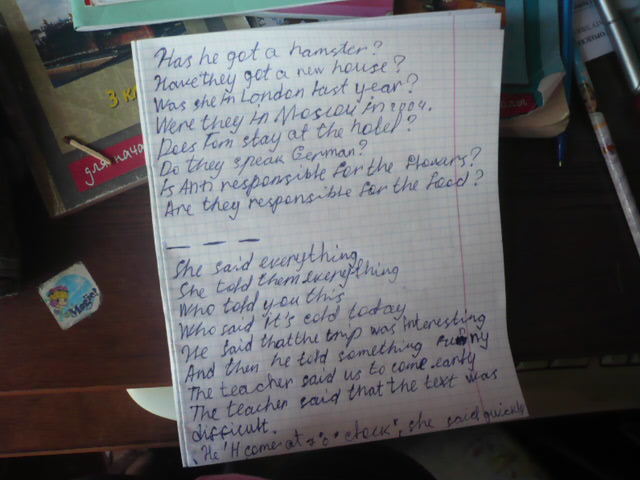 Has he got a hamster?
Have they got a new house?
Was she in London last year?
Were they in Moscow in 2004.
Does Tom stay at the hotel?
Do they speak German?
Is Ann responsible for the flowers?
Are they responsible for the food?
She said everything
She told them everything
Who told you this
Who said it's cold today
He said that the trip was interesting
And then he told something funny
The teacher said us to come early
The teacher said that the text was
difficult.
"He'll come at 7 o'clock", she said quickly
3 кл
для нача
Magic